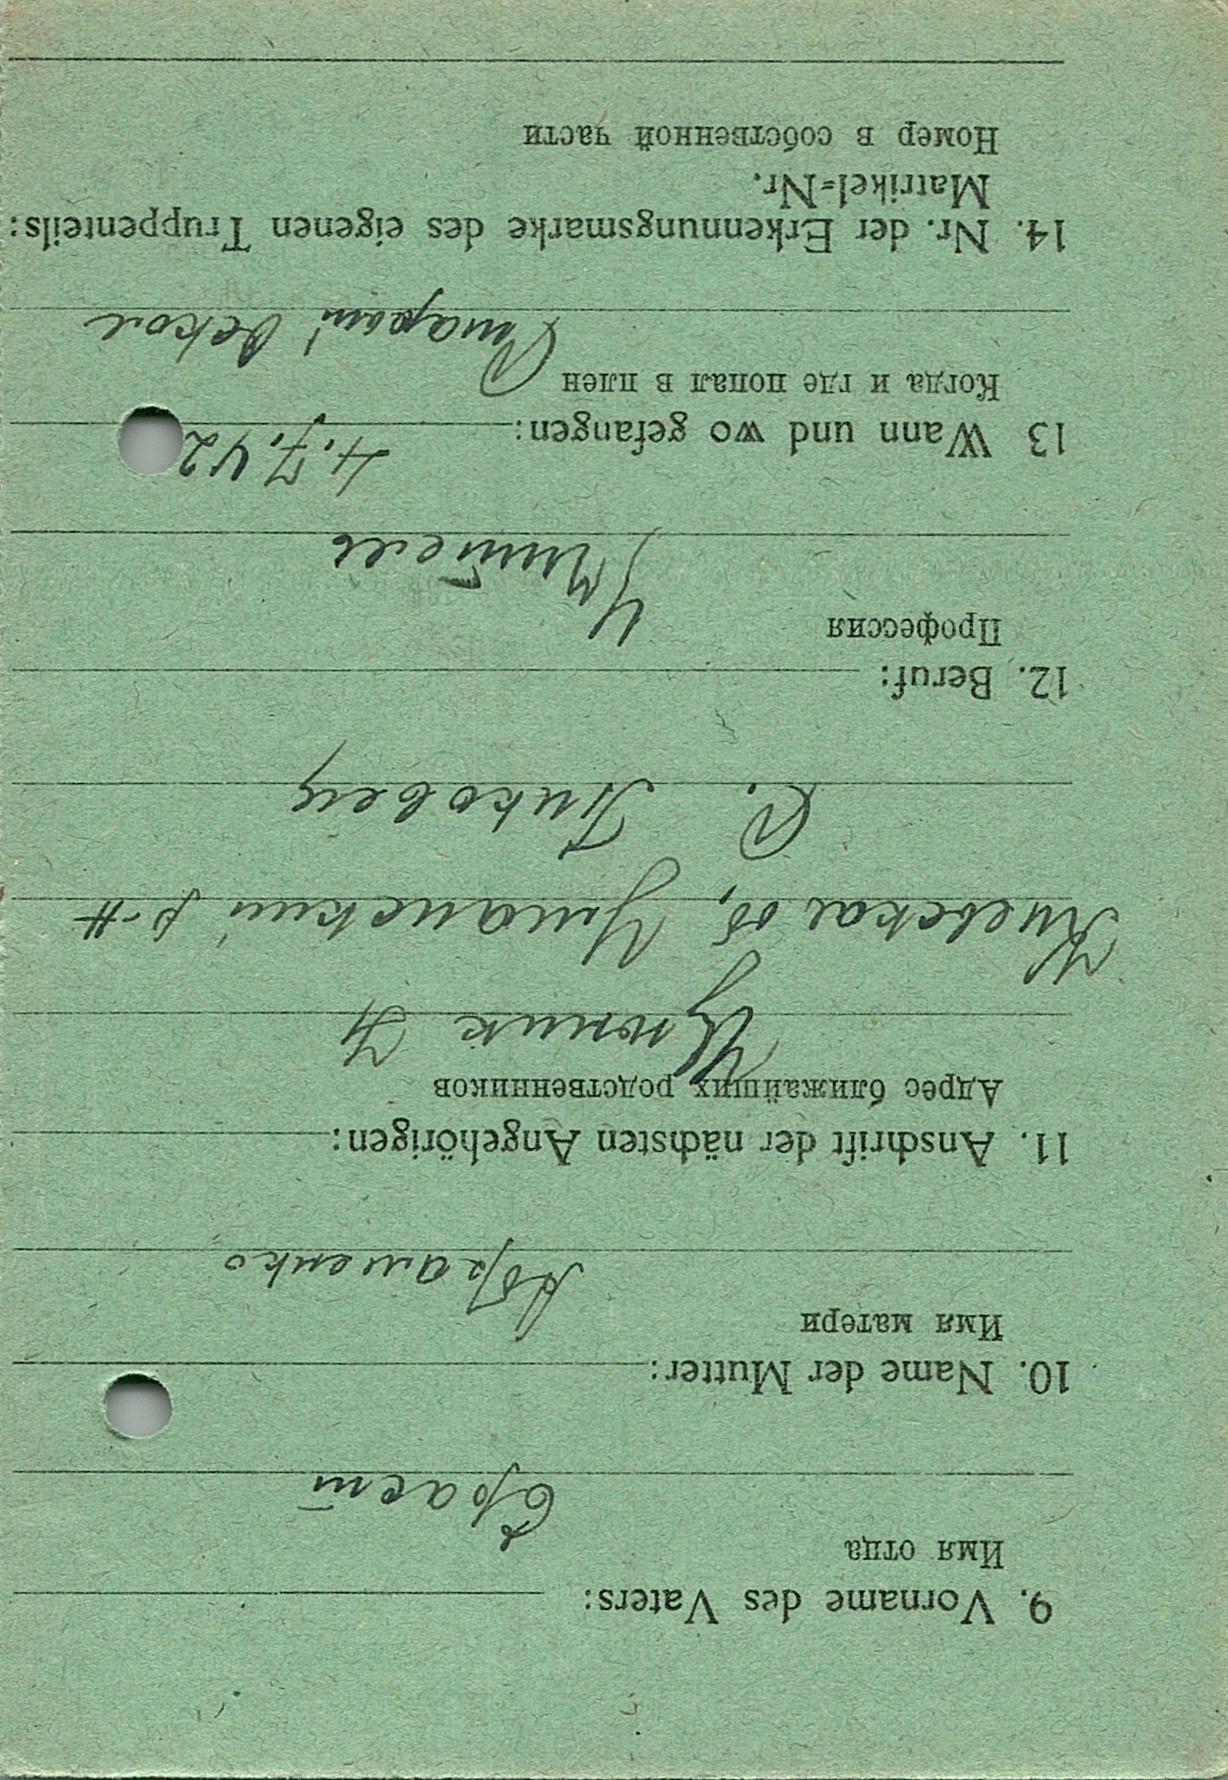 9. Vorname des Vaters:
Имя отца
Ерасти
10. Name der Mutter:
Имя матери
Абраменко
11. Anschrift der nächsten Angehörigen:
Адрес ближайших родственников
Н
Киевская об, Уманский р-н
С. Пиковец
12. Beruf:
Профессия
Учитель
13 Wann und wo gefangen:
4.7.42
Когда и где попал в плен
Старый Оскол
14. Nr. der Erkennungsmarke des eigenen Truppenteils:
Matrikel=Nr.
Номер в собственной части